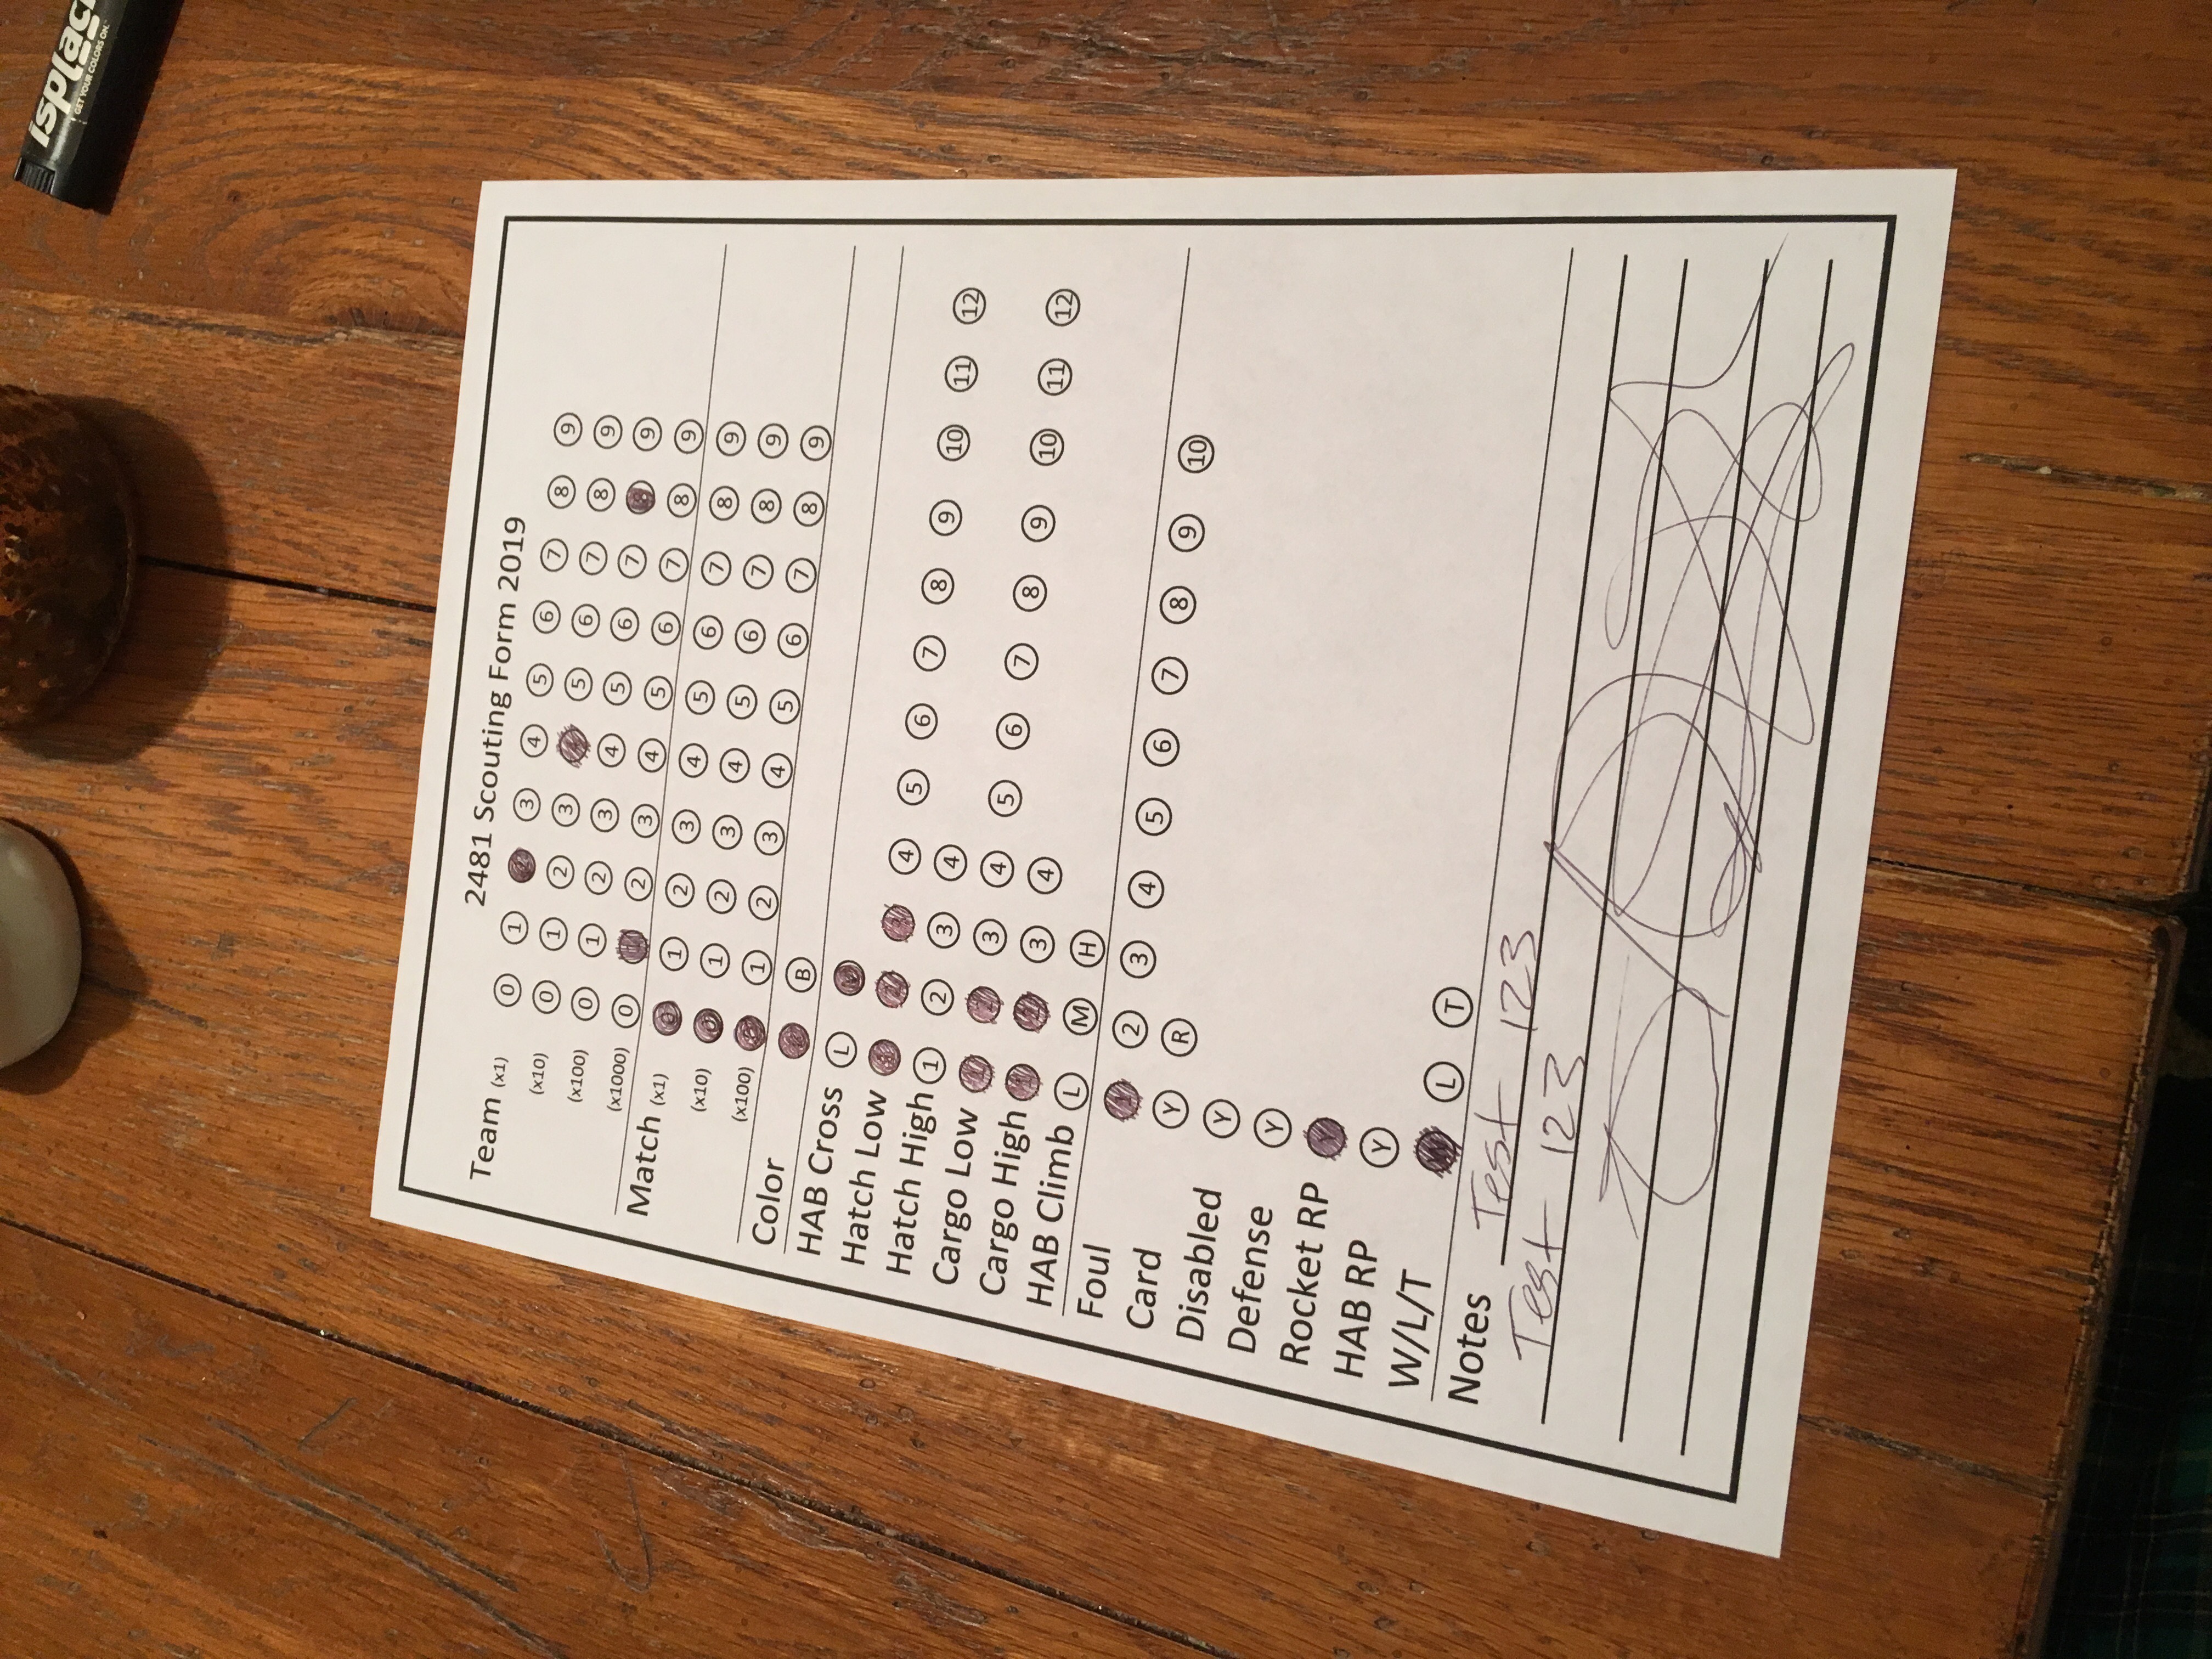 isplack
GET YOUR COLORS ON.
2481 Scouting Form 2019
Team (x1) 0 1 3 4 5 6 7 8 9
(x10) 0 1 2 3 5 6 7 8 9
(x100) 0 1 2 3 4 5 6 7 8 9
(x1000) 0 2 3 4 5 6 7 8 9
Match (x1) 0 1 2 3 4 5 6 7 8 9
(x10) 0 1 2 3 4 5 6 7 8 9
(x100) 1 2 3 4 5 6 7 8 9
Color B
HAB Cross L
Hatch Low 4 5 6 7 8 9 10 11 12
Hatch High 1 2 3 4
Cargo Low 3 4 5 6 7 8 9 10 11 12
Cargo High 3 4
HAB Climb L M H
Foul 2 3 4 5 6 7 8 9 10
Card Y R
Disabled Y
Defense Y
Rocket RP Y
HAB RP Y
W/L/T L T
Notes Test 123
Test 123